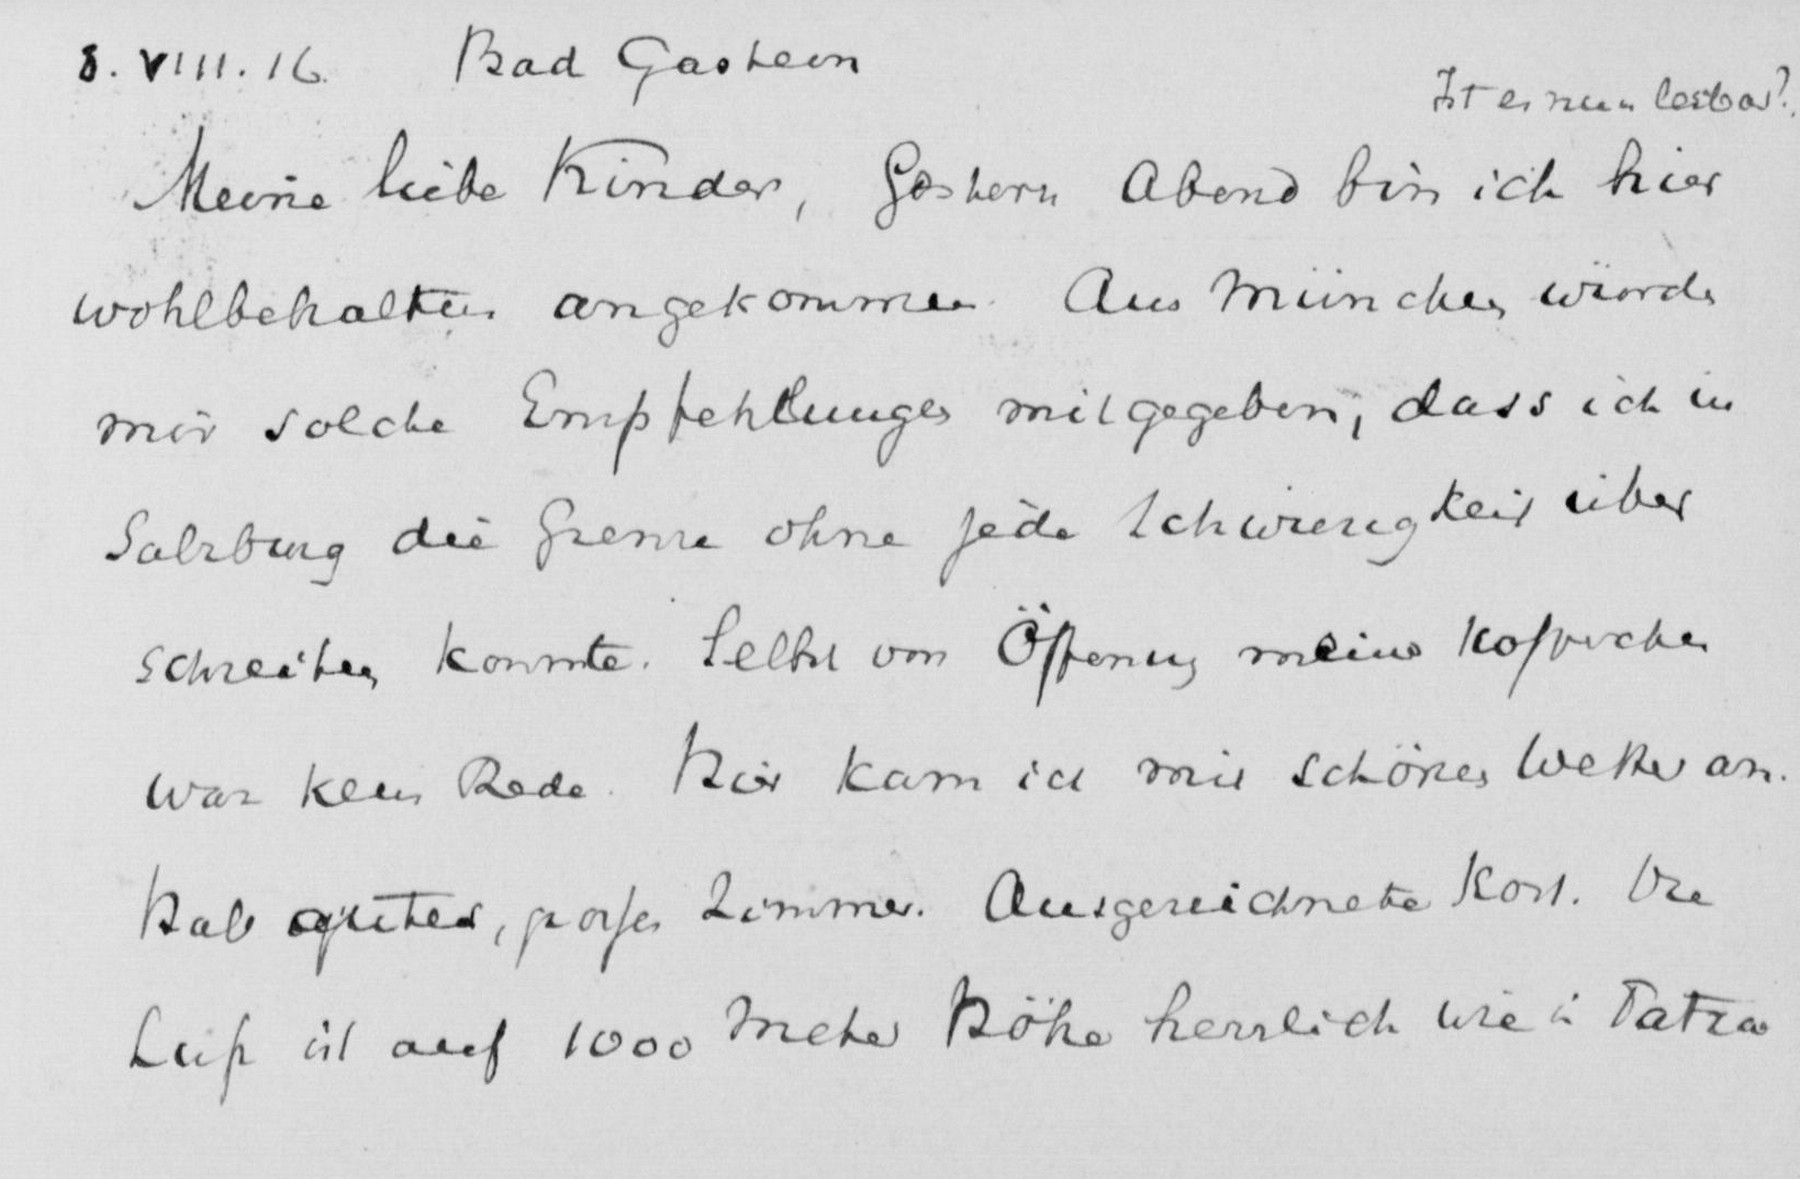 8. VIII. 16. Bad Gastein
Ist es nun lesbar?
Meine liebe Kinder, Gestern Abend bin ich hier
wohlbehalten angekommen. Aus München wurde
mir solche Empfehlungen mitgegeben, dass ich in
Salzburg die Grenze ohne jede Schwierigkeit über
schreiten konnte. Selbst von Öffnung meines Köfferchen
war kein Rede. Hier kam ich mit schönes Wetter an.
Hab gutes, großes Zimmer. Ausgezeichnete Kost. Die
Luft ist auf 1000 Meter Höhe herrlich wie in Tatra